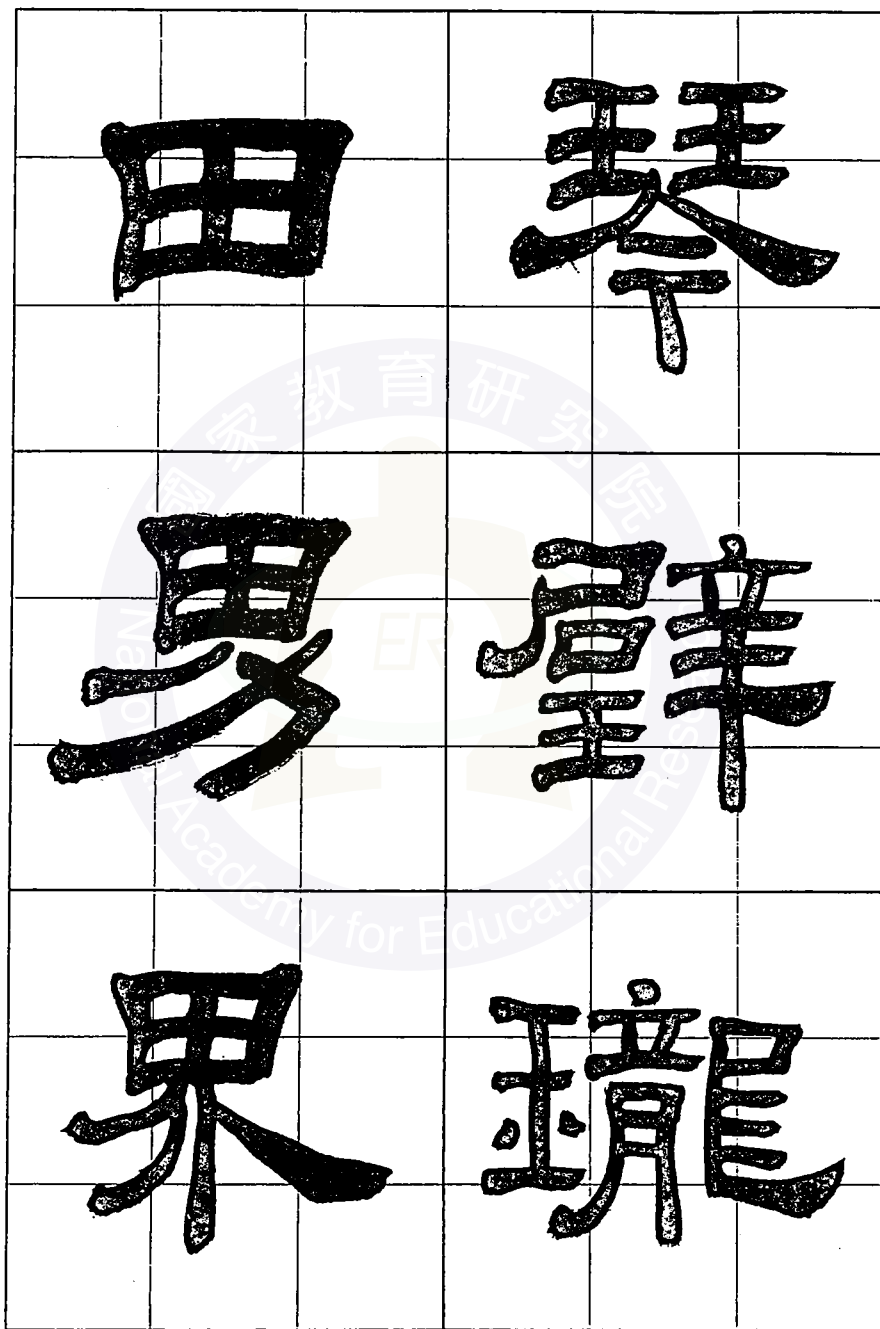 琴璧瓏
田男界
國家教育研究院
National Academy for Educational Research